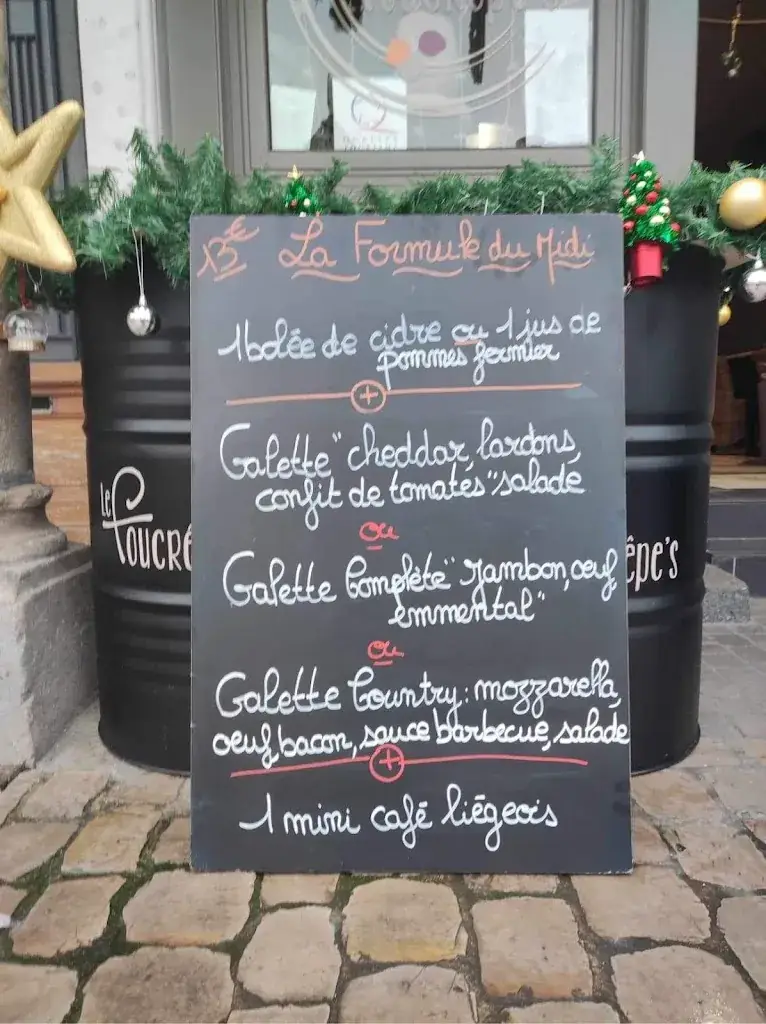 13€ La Formule du Midi
1 bolée de cidre ou 1 jus de
pommes fermier
+
Galette "cheddar, lardons,
confit de tomates" salade
ou
Galette Complète "Jambon, oeuf,
emmental"
ou
Galette Country: mozzarella,
oeuf, bacon, sauce barbecue, salade
+
1 mini café liégeois
Le
Foucré
êpe's